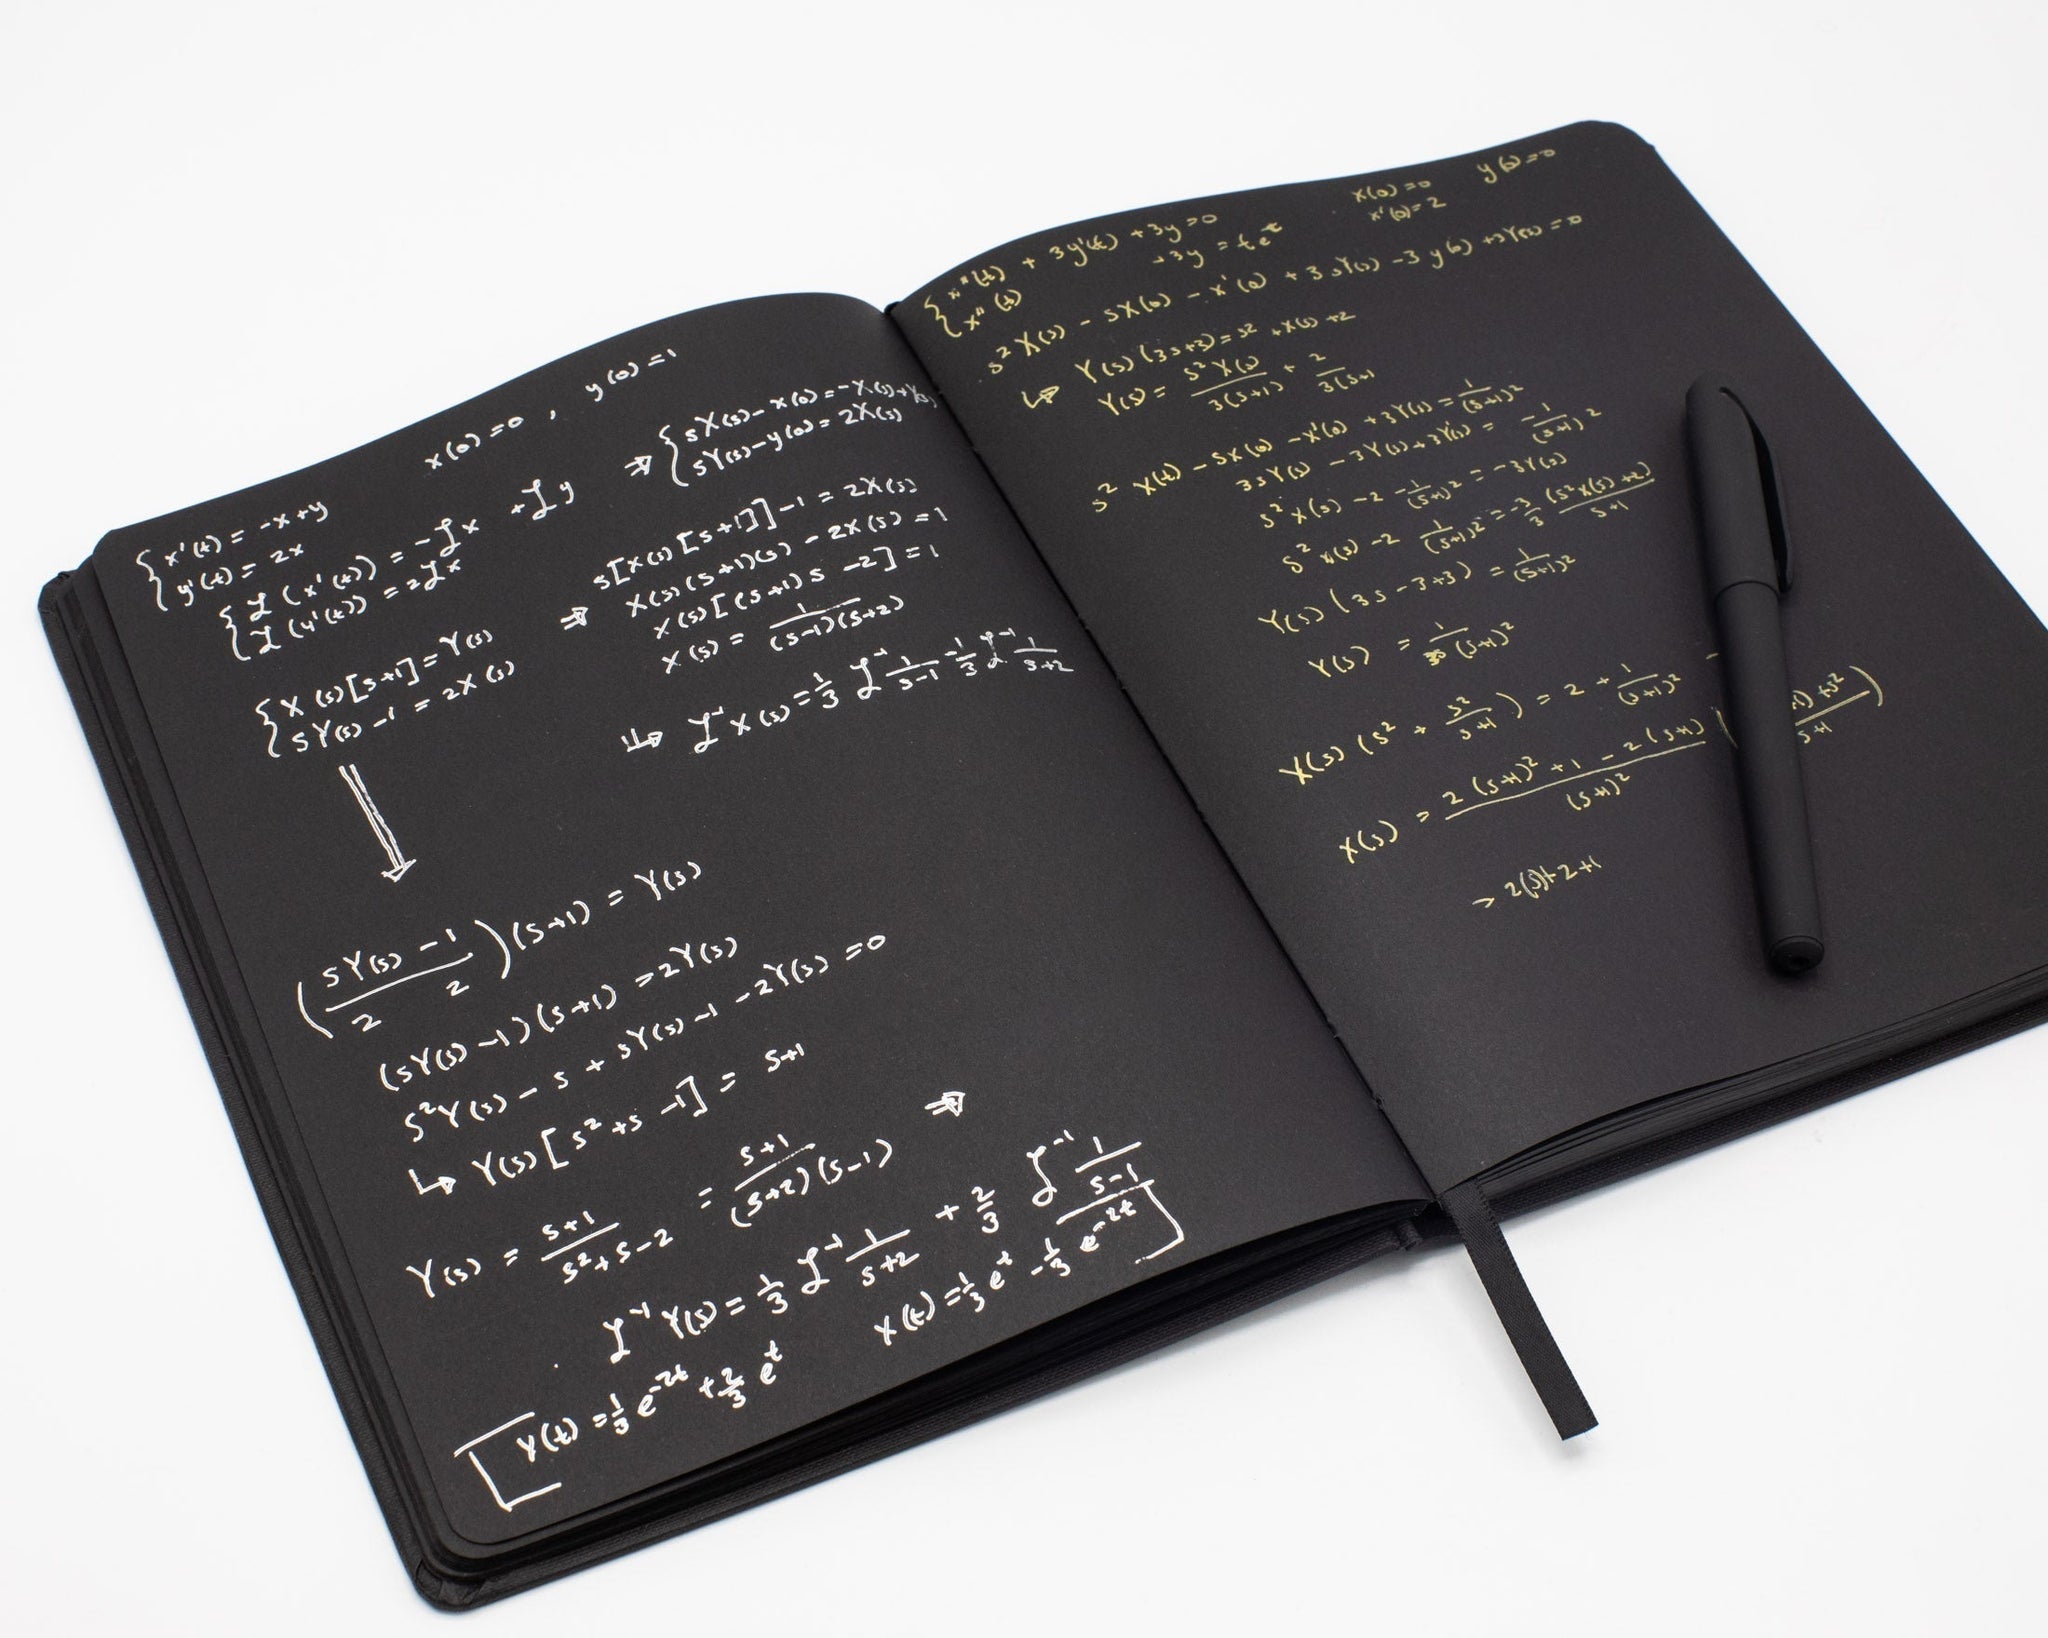 x(0) = 0 , y(0) = 1
{ x'(t) = -x+y
y'(t) = 2x
{ ℒ(x'(t)) = -ℒx + ℒy
ℒ(y'(t)) = 2ℒx
{ X(s)[s+1] = Y(s)
sY(s) - 1 = 2X(s)
⇒ { sX(s) - x(0) = -X(s) + Y(s)
sY(s) - y(0) = 2X(s)
⇒ s[X(s)[s+1]] - 1 = 2X(s)
X(s)(s+1)(s) - 2X(s) = 1
X(s)[(s+1)s - 2] = 1
X(s) = 1/(s-1)(s+2)
↳ ℒ⁻¹X(s) = 1/3 ℒ⁻¹ 1/s-1 - 1/3 ℒ⁻¹ 1/s+2
(sY(s) - 1 / 2 2)(s+1) = Y(s)
(sY(s) - 1)(s+1) = 2Y(s)
s²Y(s) - s + sY(s) - 1 - 2Y(s) = 0
↳ Y(s)[s² + s - 1] = s+1
Y(s) = s+1/s²+s-2 = s+1/(s+2)(s-1) ⇒
ℒ⁻¹Y(s) = 1/3 ℒ⁻¹ 1/s+2 + 2/3 ℒ⁻¹ 1/s-1
Y(t) = 1/3 e^-2t + 2/3 e^t
X(t) = 1/3 e^t - 1/3 e^-2t
x(0) = 0 y(0) = 0
x'(0) = 2
{ x''(t) + 3y'(t) + 3y = 0
x''(t) + 3y = te^-t
s²X(s) - sX(0) - x'(0) + 3sY(s) - 3y(0) + 3Y(s) = 0
↳ Y(s)(3s+3) = s² + X(s) + 2
Y(s) = s²X(s)/3(s+1) + 2/3(s+1
s² X(t) - sX(0) - x'(0) + 3Y(s) = 1/(s+1)²
3sY(s) - 3Y(s) + 3Y(s) = -1/(s+1)²
s²X(s) - 2 - 1/(s+1)² = -3Y(s)
s²X(s) - 2 1/(s+1)² = -3/3 (s²X(s)+2)/s+1
Y(s)(3s-3+3) = 1/(s+1)²
Y(s) = 1/(s+1)²
X(s)(s² + s²/s+1) = 2 + 1/(s+1)² -
X(s) = 2(s+1)² + 1 - 2(s+1)/(s+1)² ( +s²/s+1 )
→ 2(s)+2+1